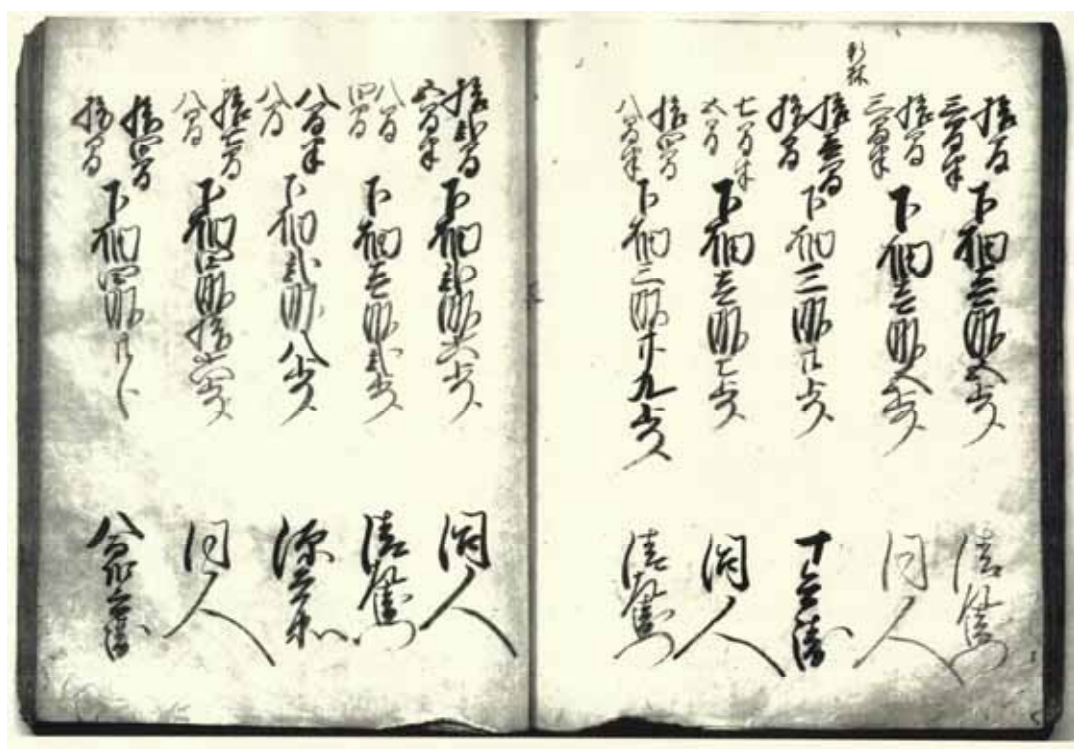 拾間
三間半
下畑壱畝五歩
拾間
三間半
下畑壱畝五歩
同人
拾壱間
拾間
下畑三畝廿歩
七間半
五間
下畑壱畝七歩
同人
拾四間
八間半
下畑三畝廿九歩
拾弐間
五間半
下畑弐畝六歩
同人
八間
四間
下畑壱畝弐歩
八間半
八間
下畑弐畝八歩
拾七間
八間
下畑四畝拾六歩
同人
拾四間
拾間
下畑四畝廿歩